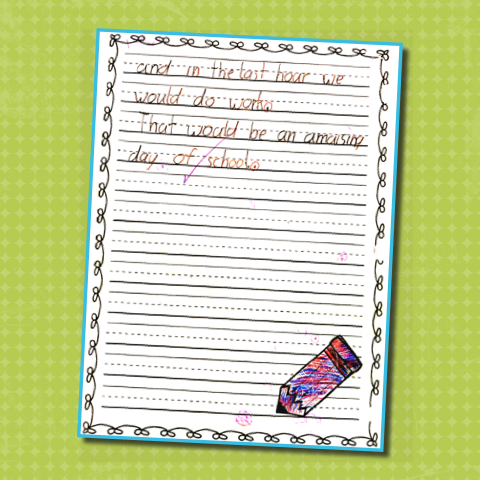 and in the last hoar we
would do work.
That would be an amaising
day of school.